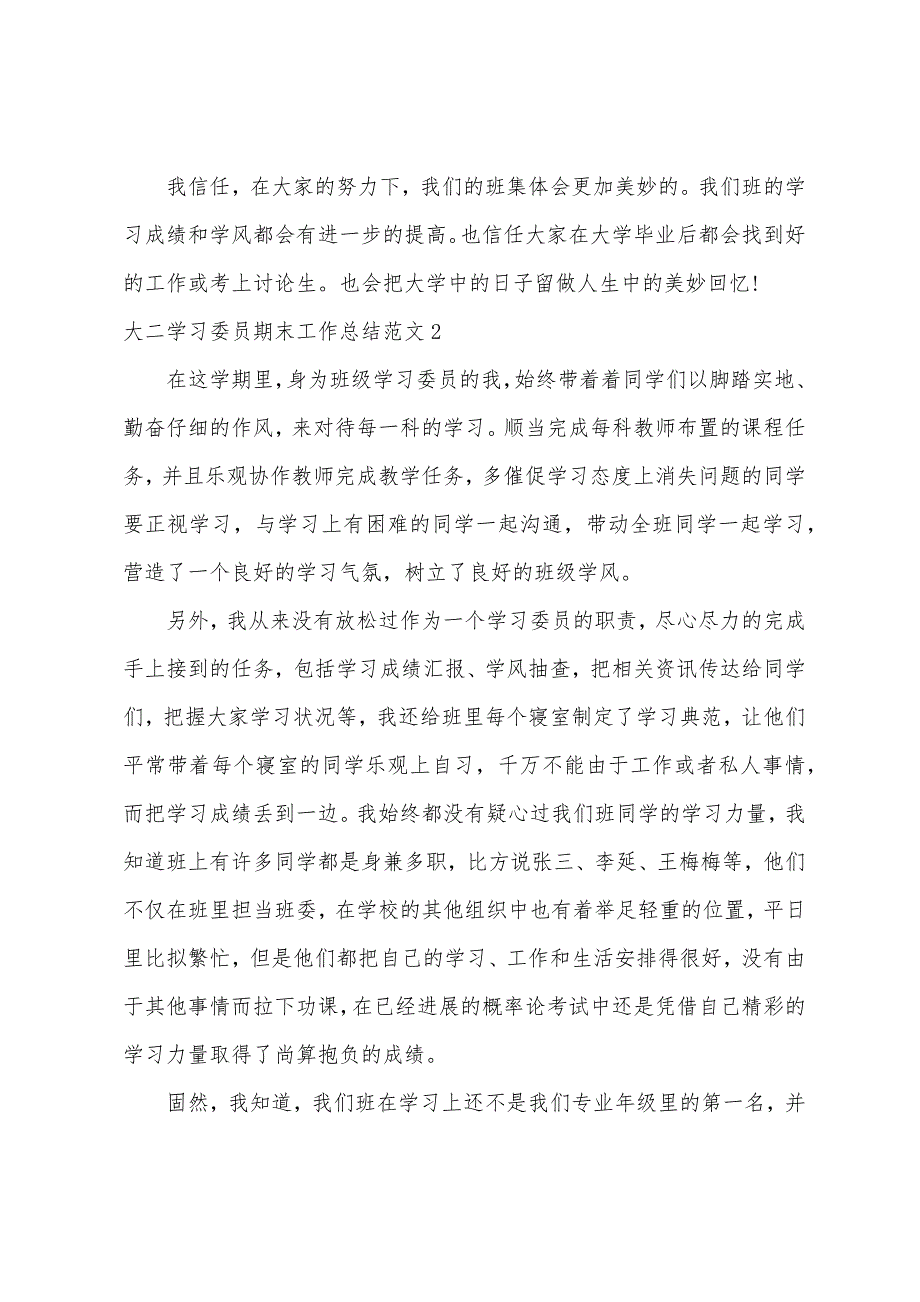 我信任，在大家的努力下，我们的班集体会更加美妙的。我们班的学
习成绩和学风都会有进一步的提高。也信任大家在大学毕业后都会找到好
的工作或考上讨论生。也会把大学中的日子留做人生中的美妙回忆!
大二学习委员期末工作总结范文2
在这学期里，身为班级学习委员的我，始终带着着同学们以脚踏实地、
勤奋仔细的作风，来对待每一科的学习。顺当完成每科教师布置的课程任
务，并且乐观协作教师完成教学任务，多催促学习态度上消失问题的同学
要正视学习，与学习上有困难的同学一起沟通，带动全班同学一起学习，
营造了一个良好的学习气氛，树立了良好的班级学风。
另外，我从来没有放松过作为一个学习委员的职责，尽心尽力的完成
手上接到的任务，包括学习成绩汇报、学风抽查，把相关资讯传达给同学
们，把握大家学习状况等，我还给班里每个寝室制定了学习典范，让他们
平常带着每个寝室的同学乐观上自习，千万不能由于工作或者私人事情，
而把学习成绩丢到一边。我始终都没有疑心过我们班同学的学习力量，我
知道班上有许多同学都是身兼多职，比方说张三、李延、王梅梅等，他们
不仅在班里担当班委，在学校的其他组织中也有着举足轻重的位置，平日
里比拟繁忙，但是他们都把自己的学习、工作和生活安排得很好，没有由
于其他事情而拉下功课，在已经进展的概率论考试中还是凭借自己精彩的
学习力量取得了尚算抱负的成绩。
固然，我知道，我们班在学习上还不是我们专业年级里的第一名，并